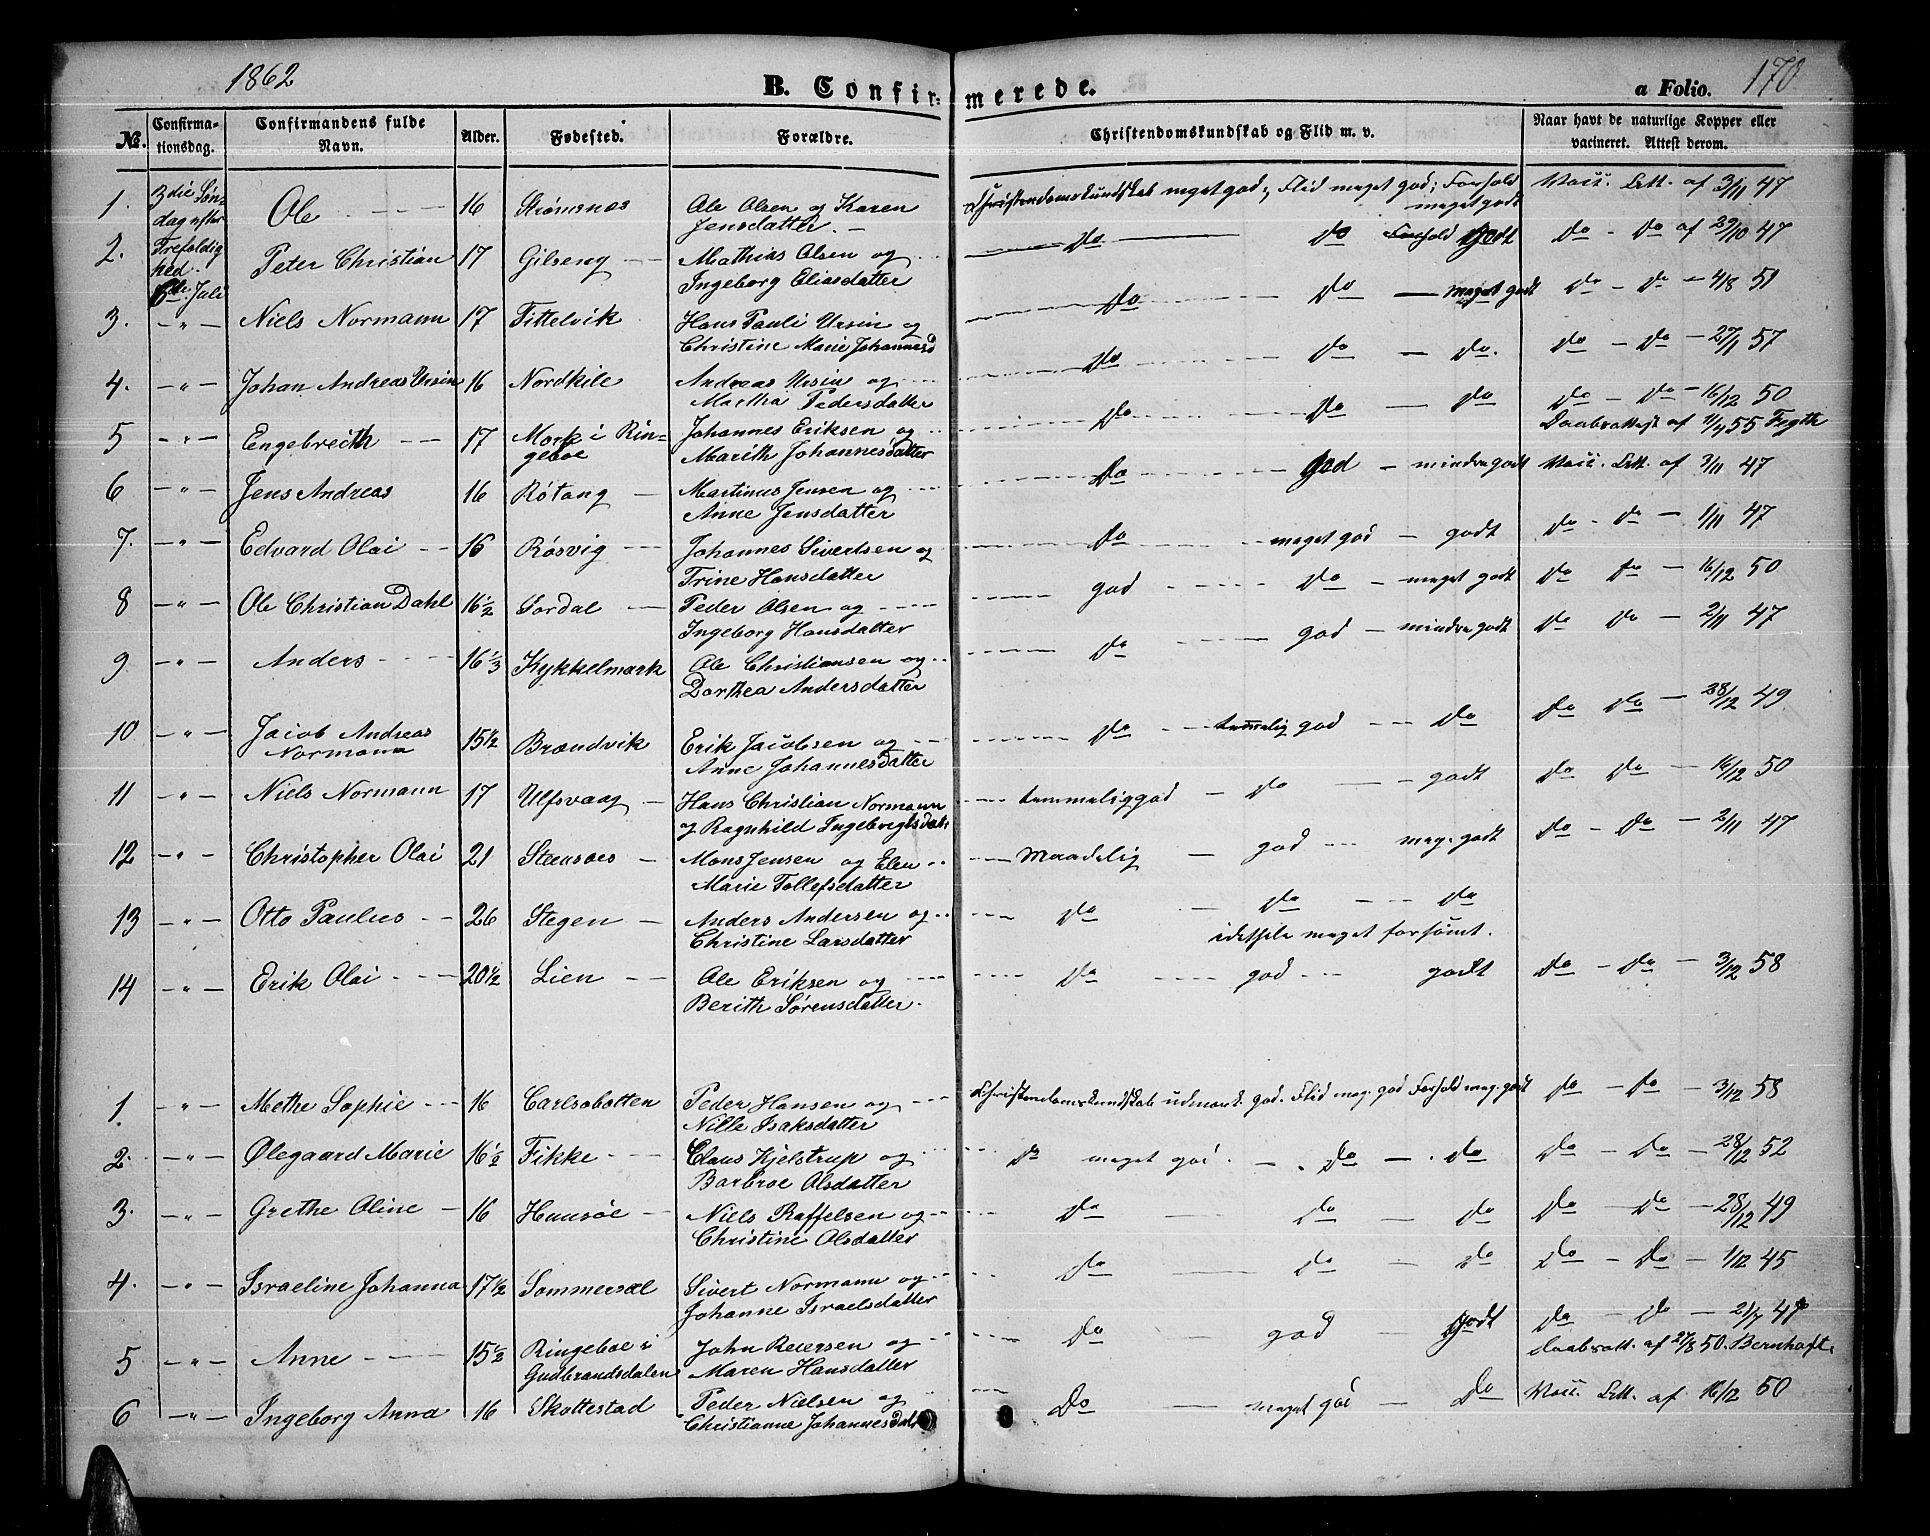 1862
B. Confirmerede.
a Folio. 170
No. Confirmationsdag. Confirmandens fulde Navn. Alder. Fødested. Forældre. Christendomskundskab og Flid m. v. Naar havt de naturlige Kopper eller vacineret. Attest derom.
1. 3die Søndag efter Ole 16 Strømsnes Ole Olsen og Karen Jensdatter. Christendomskundskab meget god; Flid meget god; Forhold meget godt Vacc. Att. af 3/11 47
2. Trefoldighed. Peter Christian 17 Gilseng Mathias Olsen og Ingeborg Eliasdatter Do Do Forhold godt Do - Do af 29/10 47
6te Juli
3. -"- Niels Normann 17 Tittelvik Hans Pauli Ursin og Christine Marie Johannesd Do Do meget godt Do - Do - 4/8 51
4. -"- Johan Andreas Ursin 16 Nordkile Andreas Ursin og Martha Pedersdatter Do Do - Do. Do - Do - 27/1 57
5 -"- Engebreth 17 Mork i Ringeboe Johannes Eriksen og Marith Johannesdatter Do Do - Do Do - Do - 16/12 50
Daabsattest af 11/4 55
6 -"- Jens Andreas 16 Røtang Martinus Jensen og Anne Jensdatter Do god - mindre godt Vacc. Att. af 3/11 47
7. -"- Edvard Olai 16 Røsvig Johannes Sivertsen og Trine Hansdatter Do meget god - godt Do - Do - 1/11 47
8 -"- Ole Christian Dahl 16 1/2 Sordal Peder Olsen og Ingeborg Hansdatter god Do - meget godt Do Do - 16/12 50
9 -"- Anders 16 1/3 Kykkelmark Ole Christiansen og Dorthea Andersdatter Do god - mindre godt Do Do - 2/11 47
10 -"- Jacob Andreas Normann 15 1/2 Brændvik Erik Jacobsen og Anne Johannesdatter Do temmelig god -- Do Do Do - 28/12 49
11 -"- Niels Normann 17 Ulfsvaag Hans Christian Normann og Ragnhild Ingebregtsdatr temmelig god - Do - godt Do Do - 16/12 50
12 -"- Christopher Olai 21 Steensoes Mons Jensen og Elen Marie Tollefsdatter Maadelig - god meg. godt Do - Do - 2/11 47
13 -"- Otto Paulus 26 Stegen Anders Andersen og Christine Larsdatter Do - Do - Do
idethele meget forsømt.
14 -"- Erik Olai 20 1/2 Lien Ole Eriksen og Berith Sørensdatter. Do god godt Do - Do - 3/12 58
1. -"- Methe Sophie 16 Carlsobotten Peder Hansen og Nille Isaksdatter Christendomskundskab udmærk. god. Flid meg. god Forhold meg. godt Do - Do - 3/12 58
2. -"- Ølegaard Marie 16 1/2 Fikke Claus Kjelstrup og Barbroe Olsdatter Do meget god. - Do - Do Do - Do - 28/12 52
3. -"- Grethe Oline 16 Hunsøe Niels Raffelsen og Christine Olsdatter Do Do - Do Do - Do - 28/12 49
4. -"- Israeline Johanna 17 1/2 Sommersel Sivert Normann og Johanne Israelsdatter Do - Do - Do Do - Do - 1/12 45
5 -"- Anne 15 1/2 Ringeboe i Gudbrandsdalen John Reiersen og Maren Hansdatter Do - god - godt Do - Do - 21/7
Daabsatt. af 27/8 50. Bernhoft.
6 -"- Ingeborg Anna 16 Skottestad Peder Nielsen og Christianne Johannesdatr Do - meget god - Do Vacc. Att. af 16/12 50